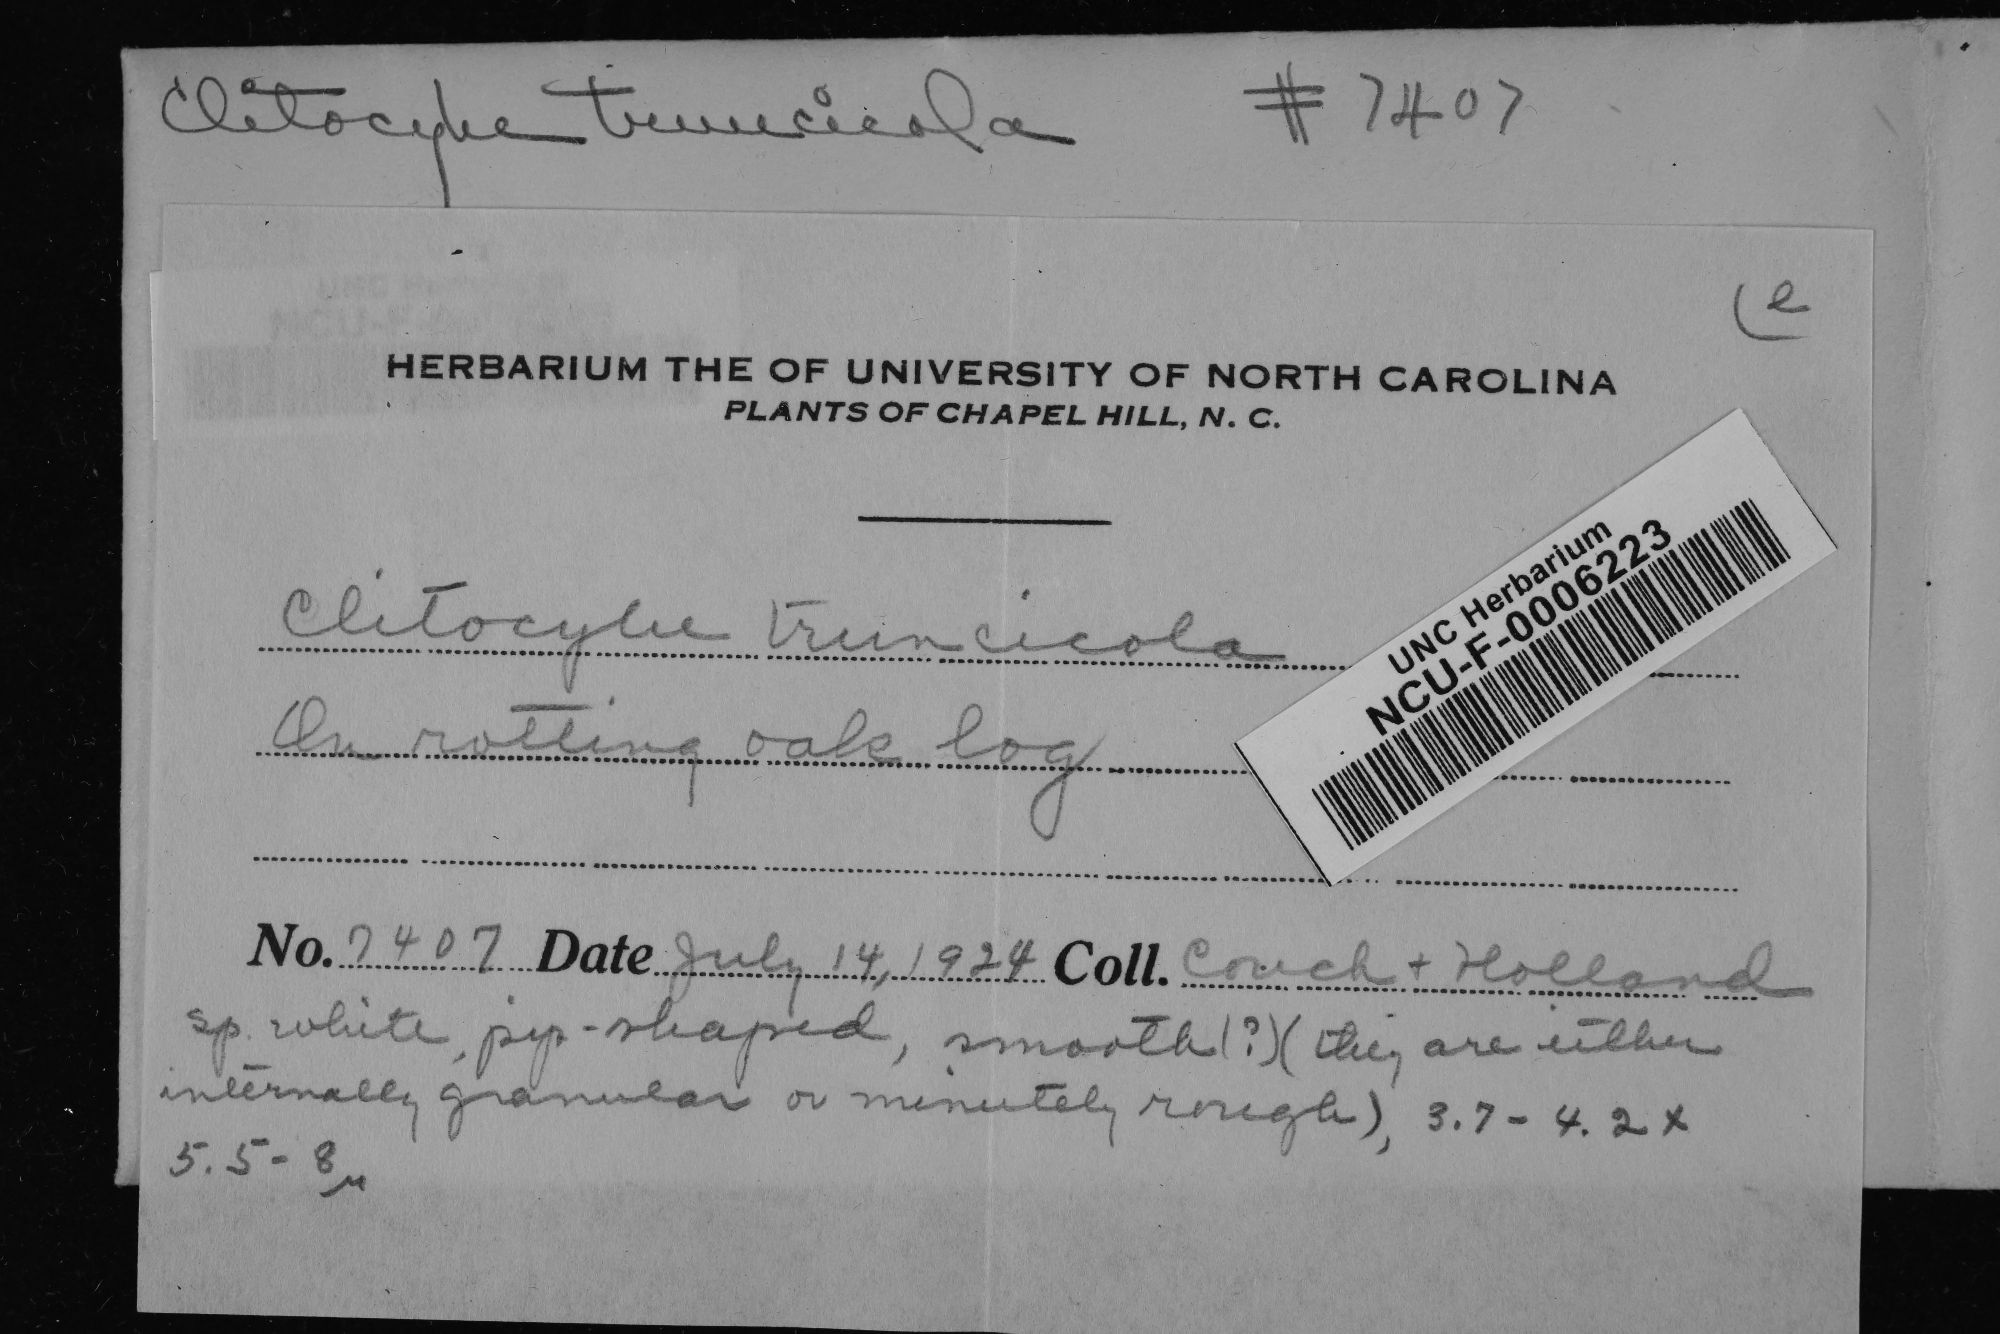 Clitocybe truncicola # 7407
e
HERBARIUM THE OF UNIVERSITY OF NORTH CAROLINA
PLANTS OF CHAPEL HILL, N. C.
UNC Herbarium
NCU-F-0006223
Clitocybe truncicola
On rotting oak log
No. 7407 Date July 14, 1924 Coll. Couch + Holland
sp. white, pip-shaped, smooth (?) (they are either
internally granular or minutely rough), 3.7 - 4.2 x
5.5 - 8µ